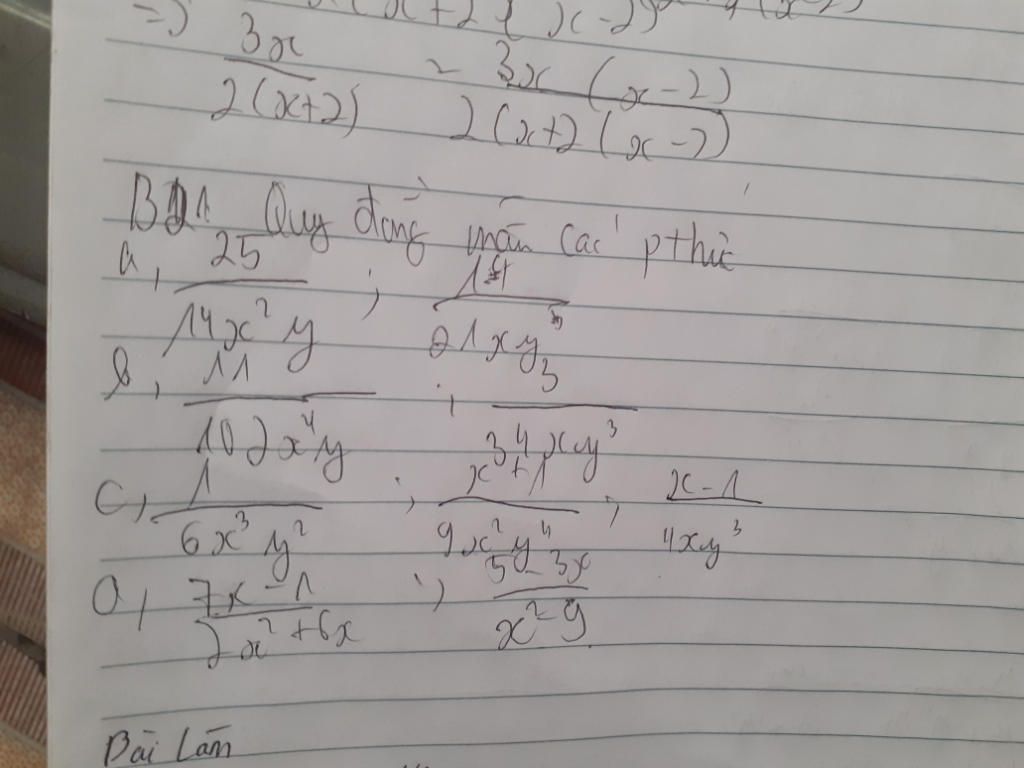 => 3x / 2(x+2) = 3x (x-2) / 2(x+2 (x-2)
Quy đồng mẫu các pthức
a, 25 / 14x²y ; 14 / 21xy⁵
b, 11 / 102x⁴y ; 3 / 34xy³
c, 1 / 6x³y² ; x+1 / 9x²y⁴ ; x-1 / 4xy³
d, 7x-1 / 2x²+6x ; 5-3x / x²-9
Bài Làm